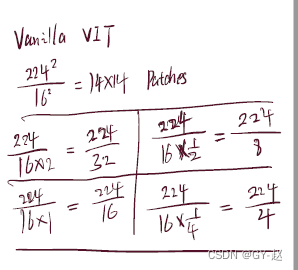 Vanilla VIT
224²/16² = 14×14 Patches
224/16×2 = 224/32
224/16×½ = 224/8
224/16×1 = 224/16
224/16×¼ = 224/4
CSDN @GY-赵